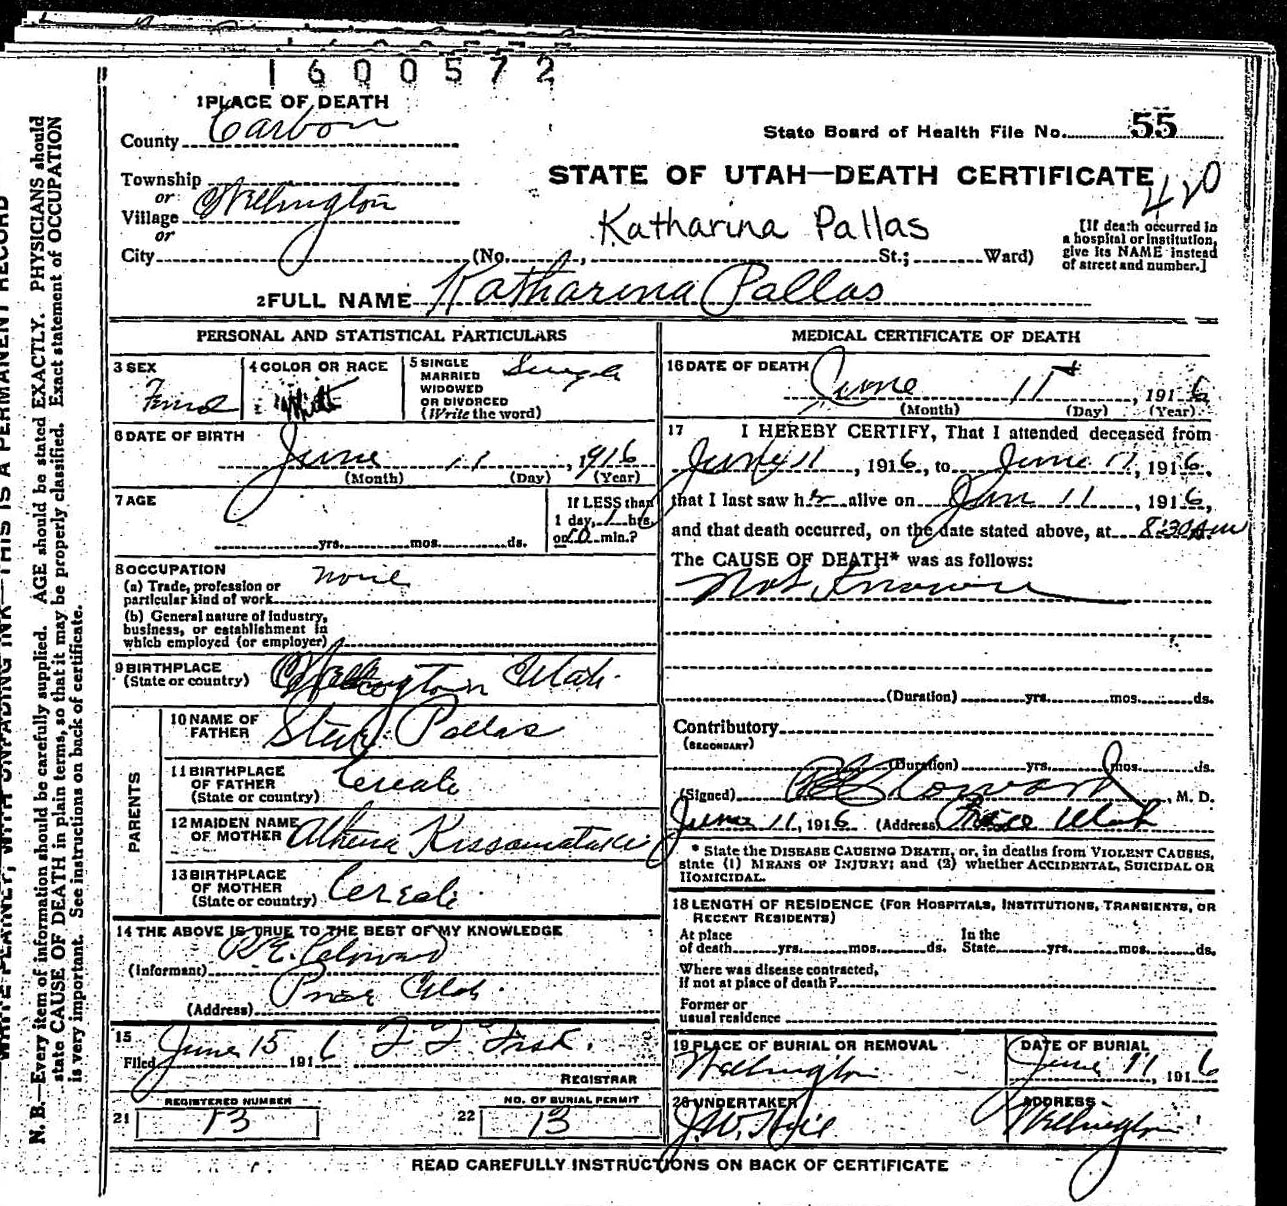 1600572
1 PLACE OF DEATH
County Carbon
State Board of Health File No. 55
STATE OF UTAH—DEATH CERTIFICATE
420
Township
or
Village Wellington
or
City
Katharina Pallas
(No. , St.; Ward)
[If death occurred in
a hospital or institution,
give its NAME instead
of street and number.]
2 FULL NAME Katharina Pallas
PERSONAL AND STATISTICAL PARTICULARS
3 SEX
4 COLOR OR RACE
5 SINGLE
MARRIED
WIDOWED
OR DIVORCED
(Write the word)
Single
6 DATE OF BIRTH
June 11, 1916
(Month) (Day) (Year)
7 AGE
yrs. mos. ds.
If LESS than
1 day, 1 hrs.
or min.?
8 OCCUPATION none
(a) Trade, profession or
particular kind of work
(b) General nature of industry,
business, or establishment in
which employed (or employer)
9 BIRTHPLACE
(State or country) Wellington Utah.
PARENTS
10 NAME OF
FATHER
Pallas
11 BIRTHPLACE
OF FATHER
(State or country)
12 MAIDEN NAME
OF MOTHER Athena
13 BIRTHPLACE
OF MOTHER
(State or country)
14 THE ABOVE IS TRUE TO THE BEST OF MY KNOWLEDGE
(Informant)
(Address) Price Utah.
15
Filed June 15 1916
REGISTRAR
REGISTERED NUMBER
21 13
NO. OF BURIAL PERMIT
22 13
MEDICAL CERTIFICATE OF DEATH
16 DATE OF DEATH
June 11, 1916
(Month) (Day) (Year)
17 I HEREBY CERTIFY, That I attended deceased from
11, 1916, to June 11, 1916,
that I last saw her alive on 11, 1916,
and that death occurred, on the date stated above, at 8:30 AM
The CAUSE OF DEATH* was as follows:
Not Known
(Duration) yrs. mos. ds.
Contributory
(SECONDARY)
(Duration) yrs. mos. ds.
(Signed) , M. D.
June 11, 1916 (Address) Price Utah
* State the DISEASE CAUSING DEATH, or, in deaths from VIOLENT CAUSES,
state (1) MEANS OF INJURY; and (2) whether ACCIDENTAL, SUICIDAL OR
HOMICIDAL.
18 LENGTH OF RESIDENCE (FOR HOSPITALS, INSTITUTIONS, TRANSIENTS, OR
RECENT RESIDENTS)
At place
of death yrs. mos. ds.
In the
State yrs. mos. ds.
Where was disease contracted,
if not at place of death?
Former or
usual residence
19 PLACE OF BURIAL OR REMOVAL
Wellington
DATE OF BURIAL
June 11, 1916
20 UNDERTAKER
J.W. Hill
ADDRESS
Wellington
READ CAREFULLY INSTRUCTIONS ON BACK OF CERTIFICATE
WRITE PLAINLY, WITH UNFADING INK—THIS IS A PERMANENT RECORD
N. B.—Every item of information should be carefully supplied. AGE should be stated EXACTLY. PHYSICIANS should
state CAUSE OF DEATH in plain terms, so that it may be properly classified. Exact statement of OCCUPATION
is very important. See instructions on back of certificate.